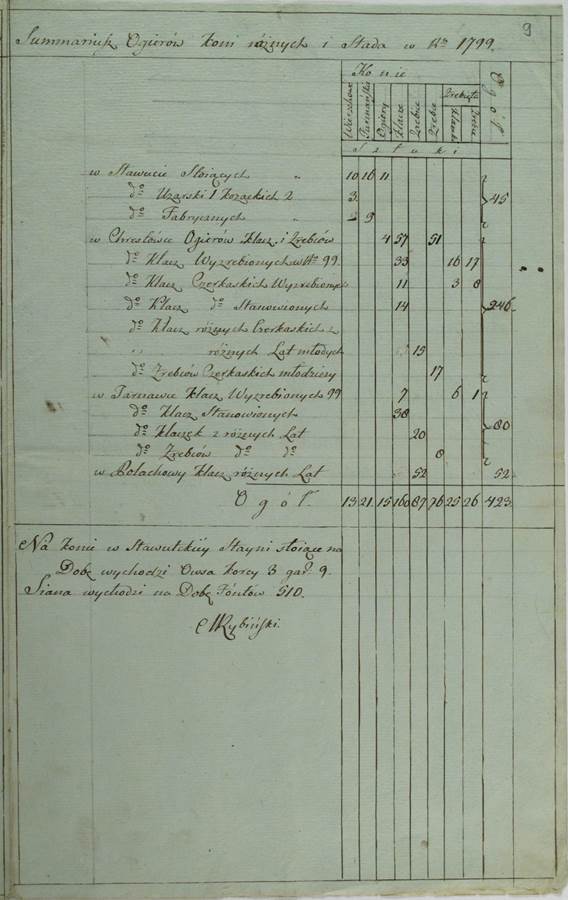 9
Summariusz Ogierów koni różnych i Stada w Rỏ 1799.
Konie
Ogół
Wierzchowe Furmańskie Ogiery Klacze Zrebice Zrebce Zrebięta
Klaczki Zrebcu
Sztuki
w Sławucie Stoiących " 10 16 11
dỏ Uzarski 1 kozackich 2 3. 45
dỏ Fabrycznych " 5
w Chresłówce Ogierów Klacz. i Zrebców 4 57 51
dỏ Klacz Wyzrebionych w Rỏ 99. 33 16 17
dỏ Klacz Czerkaskich Wyzrebionych 11 3 8
dỏ Klacz dỏ Stanowionych 14 246.
dỏ Klacz różnych Czerkaskich z
" różnych Lat młodych 15
dỏ Zrebców Czerkaskich młodzieży 17
w Tarnawie Klacz Wyzrebionych 99 7 6 1
dỏ Klacz Stanowionych 38
dỏ Klaczek z różnych Lat 20 80
dỏ Zrebców dỏ dỏ 8
w Polachowy Klacz różnych Lat 52 52.
Ogół. 13. 21. 15 160 87 76 25 26 423.
Na konie w Sławutskiey Stayni stoiące na
Dobę wychodzi Owsa korcy 3 gar: 9.
Siana wychodzi na Dobę Fóntów 510.
Rybiński.